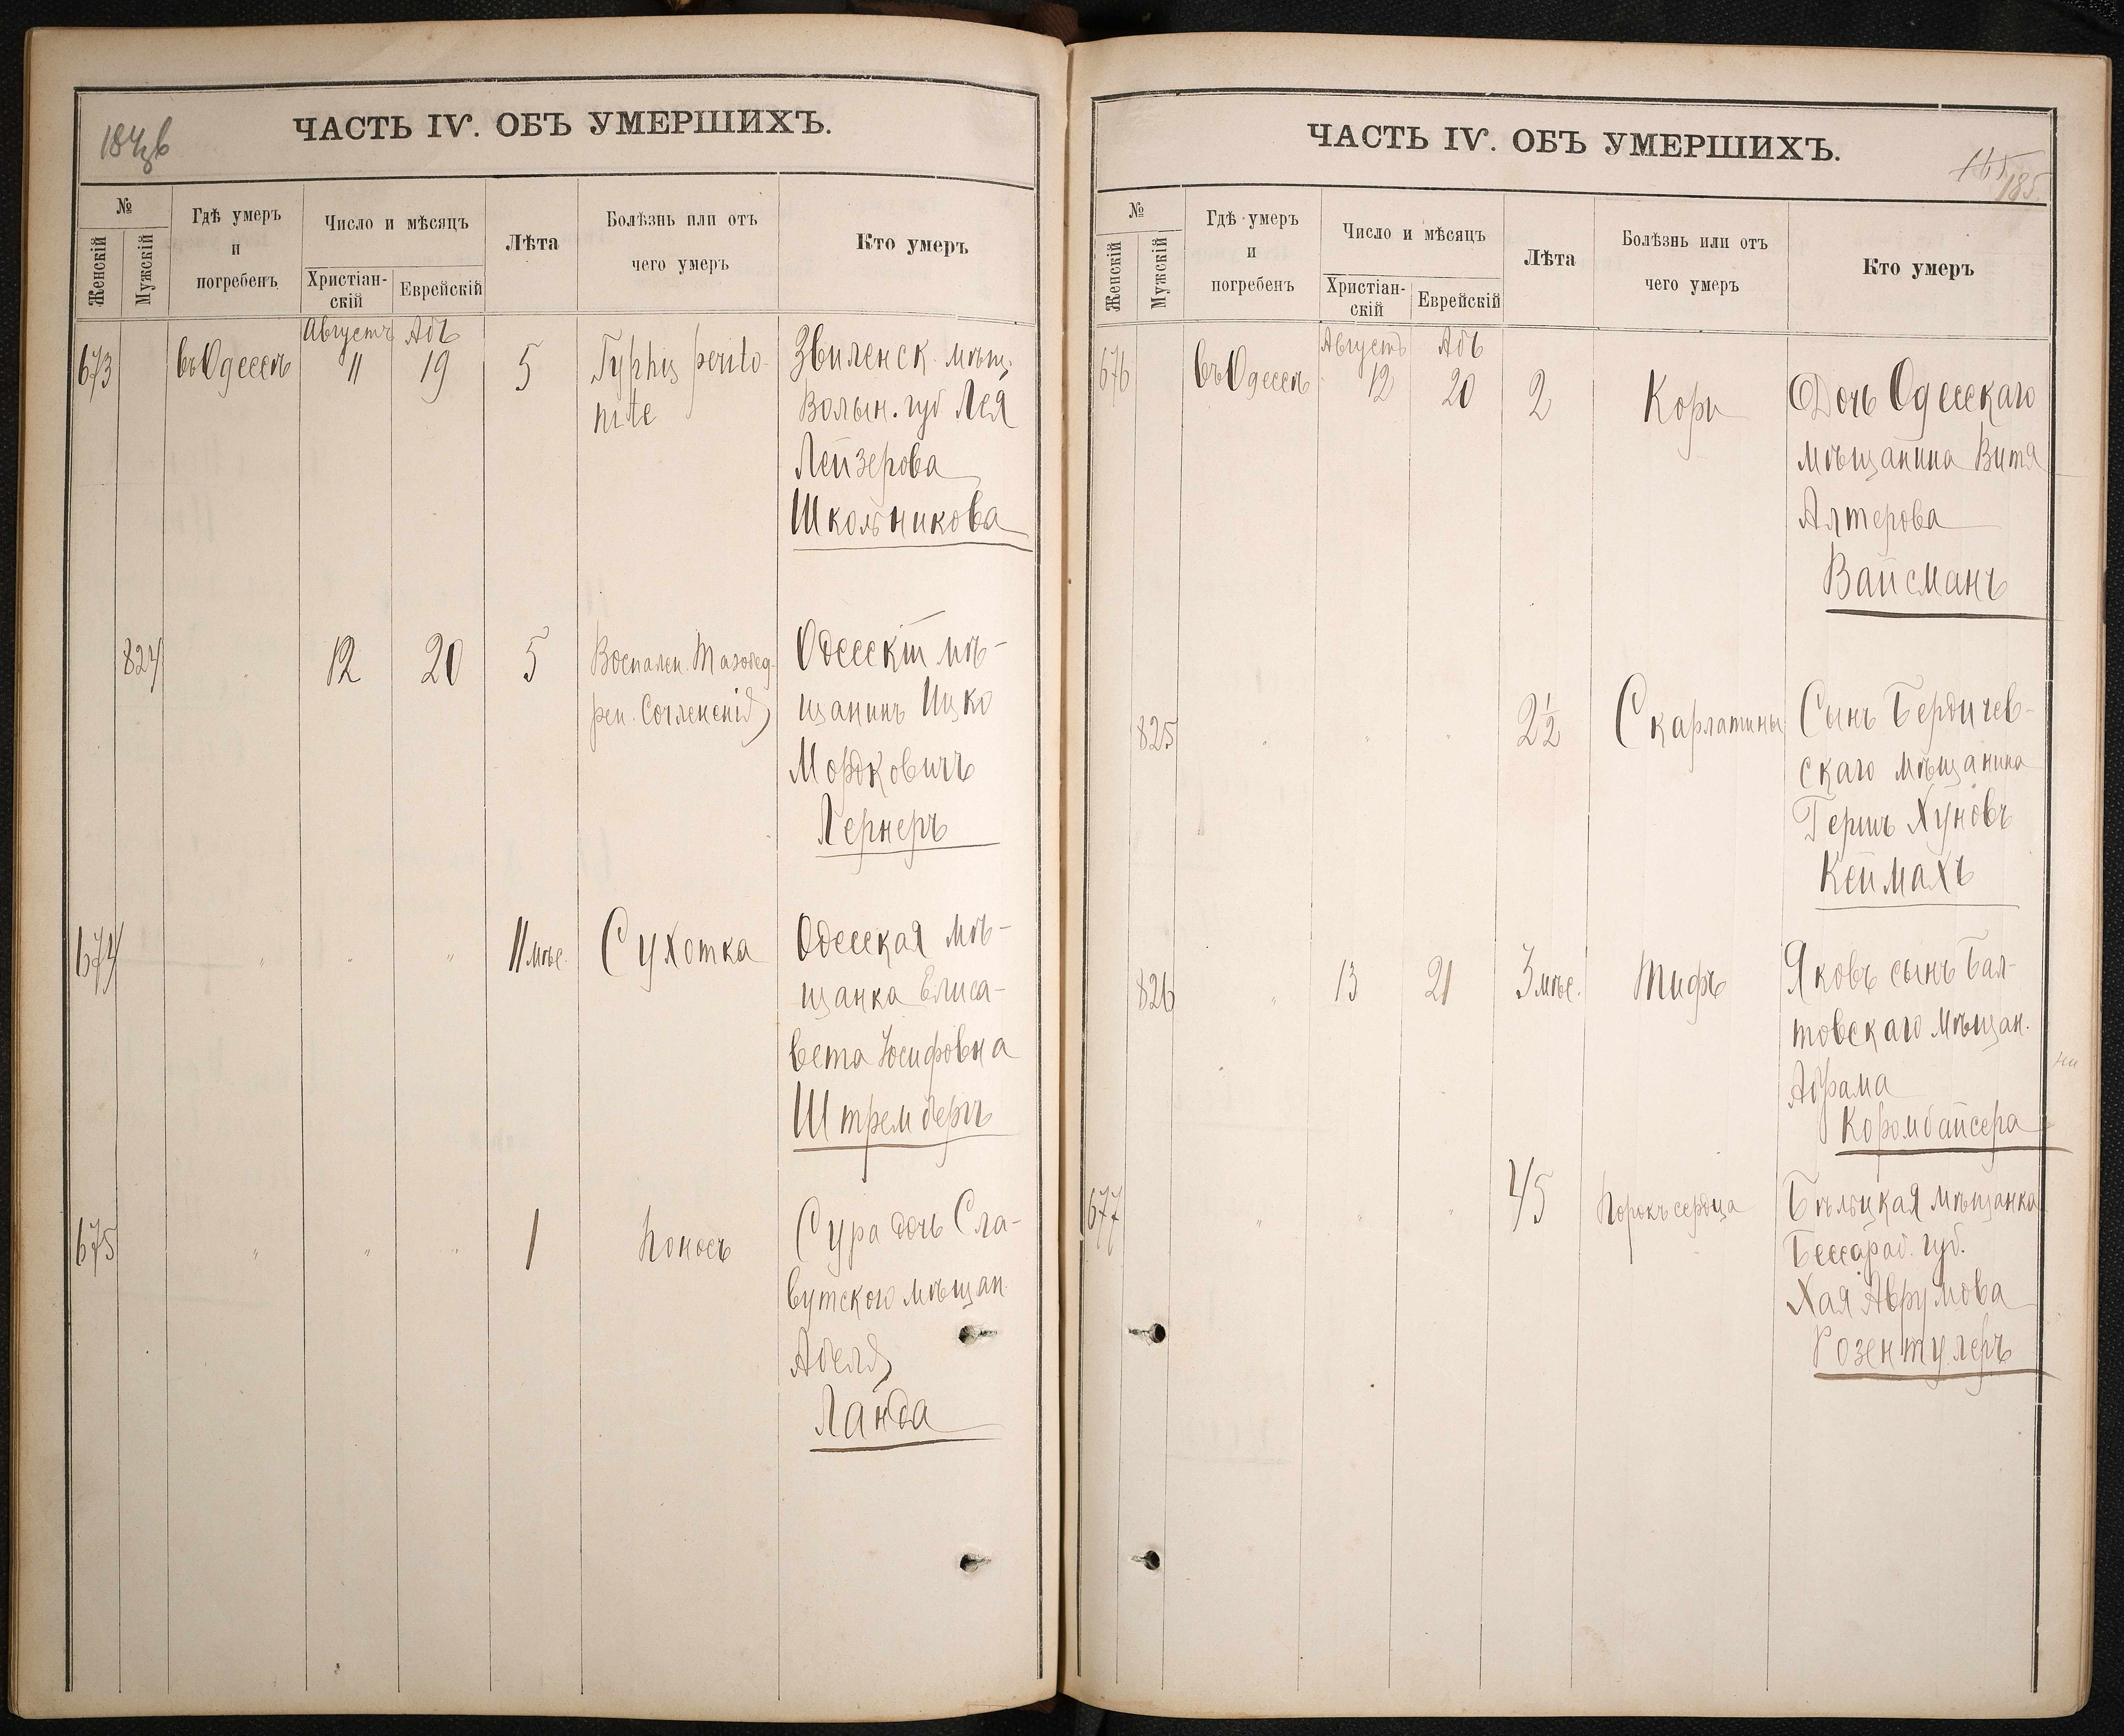 184об
ЧАСТЬ IV. ОБЪ УМЕРШИХЪ.
№
Женскій
Мужскій
Гдѣ умеръ
и
погребенъ
Число и мѣсяцъ
Христіан-
скій
Еврейскій
Лѣта
Болѣзнь или отъ
чего умеръ
Кто умеръ
Августъ Абъ
673 въ Одессѣ 11 19 5 Typhus perito-
nite
Звиленск. мѣщ.
Волын. губ Лея
Лейзерова
Школьникова
824 12 20 5 Воспален. Тазобед-
рен. Сочлененія
Одесскій мѣ-
щанинъ Ицко
Мордковичъ
Лернеръ
674 " " " 11 мѣс. Сухотка
Одесская мѣ-
щанка Елиса-
вета Іосифовна
Штремберъ
675 " " " 1 Поносъ
Сура дочь Сла-
вутского мѣщан.
Абеля
Ланда
ЧАСТЬ IV. ОБЪ УМЕРШИХЪ.
185
185.
№
Женскій
Мужскій
Гдѣ умеръ
и
погребенъ
Число и мѣсяцъ
Христіан-
скій
Еврейскій
Лѣта
Болѣзнь или отъ
чего умеръ
Кто умеръ
Августъ Абъ
676 въ Одессѣ 12 20 2 Кори
Дочь Одесскаго
мѣщанина Витя
Алтерова
Вайсманъ
825 " " " 2½ Скарлатины
Сынъ Бердичев-
скаго мѣщанина
Гершъ Хуновъ
Кеймахъ
826 " 13 21 3 мѣс. Тифъ
Яковъ сынъ Бал-
товскаго мѣщан.
Абрама
Коромбайсера
677 " " " 45 Порокъ сердца
Бѣльцкая мѣщанка
Бессараб. губ.
Хая Аврумова
Розентулеръ